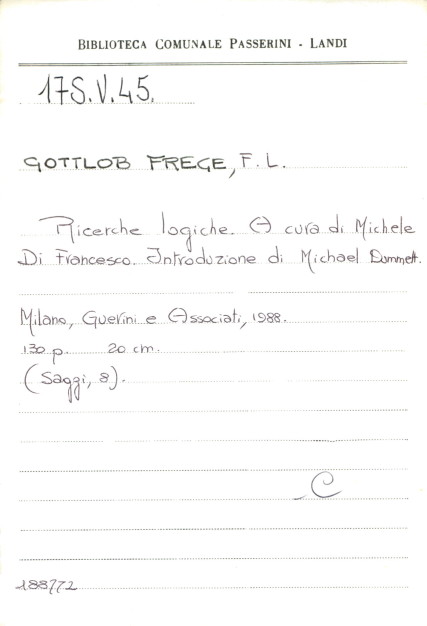 BIBLIOTECA COMUNALE PASSERINI - LANDI
17S.V.45.
GOTTLOB FREGE, F.L.
Ricerche logiche. A cura di Michele
Di Francesco. Introduzione di Michael Dummett.
Milano, Guerini e Associati, 1988.
130 p. 20 cm.
(Saggi, 8).
C
188772